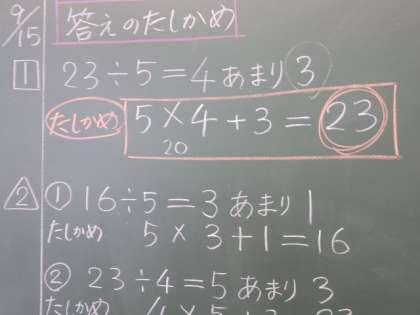 9/15 答えのたしかめ
1 23÷5=4あまり3
たしかめ 5×4+3=23
20
2 ① 16÷5=3あまり1
たしかめ 5×3+1=16
② 23÷4=5あまり3
たしかめ 4×5+3=23